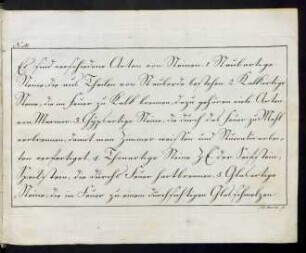 Es sind verschiedene Arten von Steinen. 1 Staubartige
Steine, die aus Theilen von Stauberde bestehen. 2. Kalkartige
Steine, die im Feuer zu Kalk brennen, dazu gehören viele Arten
von Marmor. 3. Gypsartige Steine, die durch das Feuer zu Mehl
verbrennen, damit man Zimmer weisset und
verfertiget. 4. Thonartige Steine Z.E. der
Speckstein, die durchs Feuer hart brennen. 5. Glasartige
Steine, die im Feuer zu einem durchsichtigen Glas schmelzen.